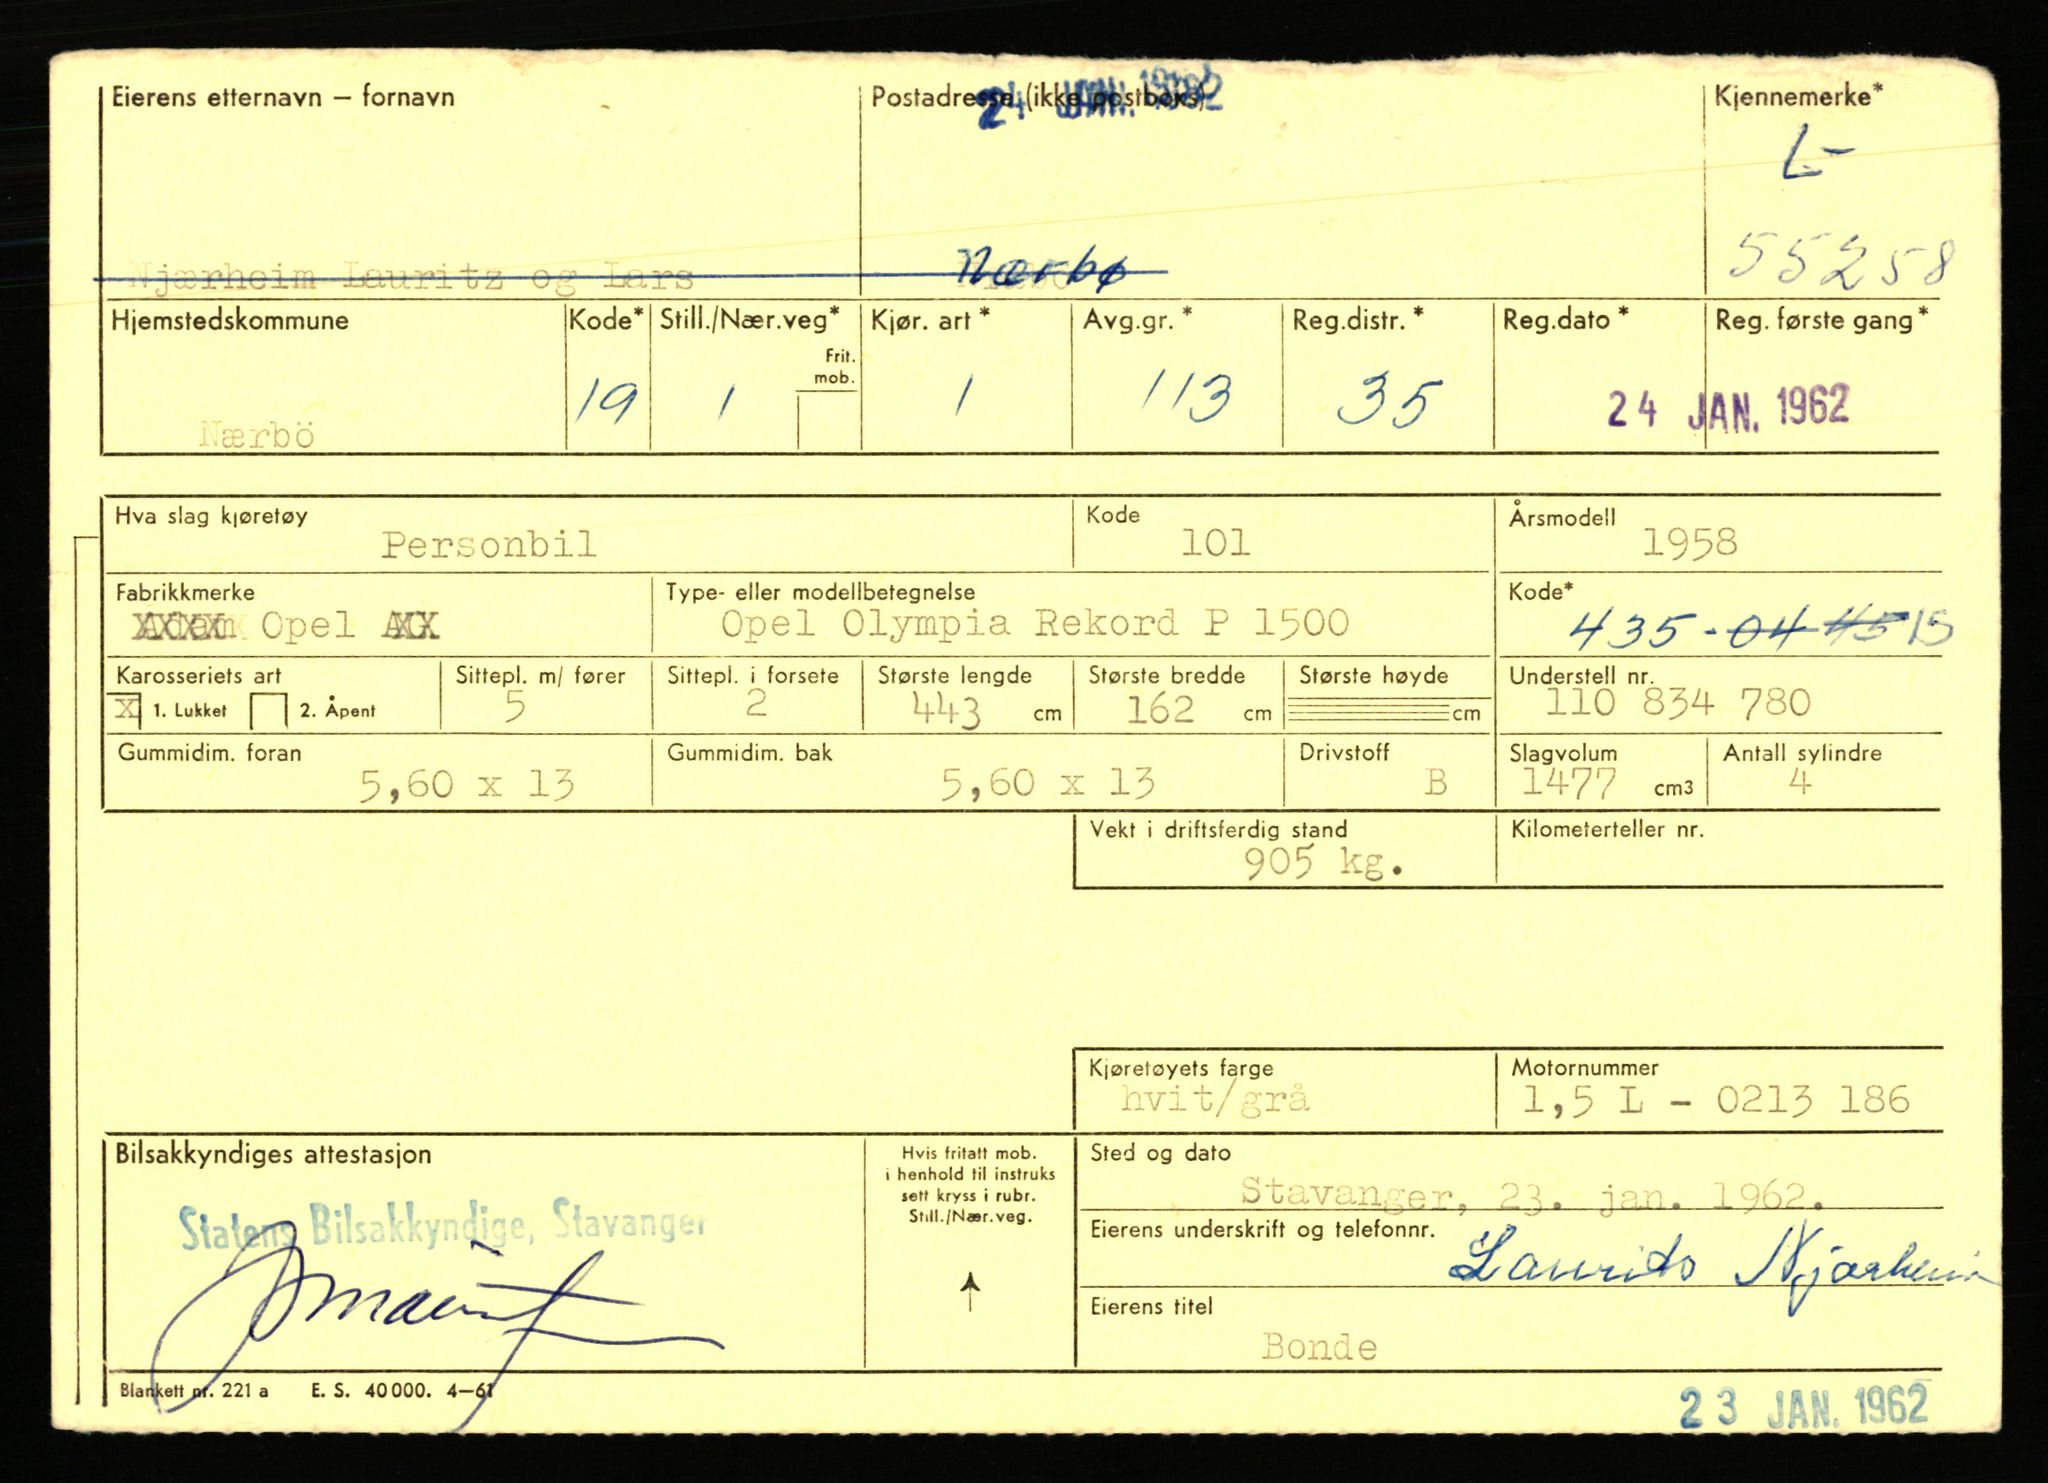 Eierens etternavn – fornavn Postadresse (ikke postboks) Kjennemerke*
24 JAN. 1962
L-
55258
Njærheim Lauritz og Lars Nærbø
Hjemstedskommune Kode* Still./Nær.veg* Kjør. art* Avg.gr.* Reg.distr.* Reg.dato* Reg. første gang*
Frit.
mob.
Nærbö 19 1 1 113 35 24 JAN. 1962
Hva slag kjøretøy Kode Årsmodell
Personbil 101 1958
Fabrikkmerke Type- eller modellbetegnelse Kode*
Adam Opel AG Opel Olympia Rekord P 1500 435-04 45 15
Karosseriets art Sittepl. m/ fører Sittepl. i forsete Største lengde Største bredde Største høyde Understell nr.
X 1. Lukket 2. Åpent 5 2 443 cm 162 cm cm 110 834 780
Gummidim. foran Gummidim. bak Drivstoff Slagvolum Antall sylindre
5,60 x 13 5,60 x 13 B 1477 cm3 4
Vekt i driftsferdig stand Kilometerteller nr.
905 kg.
Kjøretøyets farge Motornummer
hvit/grå 1,5 L - 0213 186
Bilsakkyndiges attestasjon Hvis fritatt mob. Sted og dato
i henhold til instruks
sett kryss i rubr.
Still./Nær.veg.
Stavanger, 23. jan. 1962.
Statens Bilsakkyndige, Stavanger
Eierens underskrift og telefonnr.
Laurits Njærheim
Eierens titel
Bonde
Blankett nr. 221 a E. S. 40 000. 4–61
23 JAN. 1962